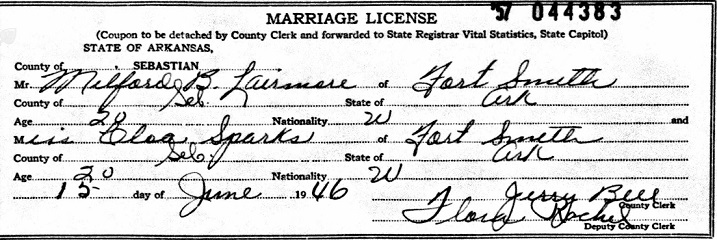 MARRIAGE LICENSE 57 044383
(Coupon to be detached by County Clerk and forwarded to State Registrar Vital Statistics, State Capitol)
STATE OF ARKANSAS,
County of SEBASTIAN
Mr. Milford B. Lairmore of Fort Smith
County of Seb. State of Ark
Age 20 Nationality W and
Miss Sparks of Fort Smith
County of Seb. State of Ark
Age 20 Nationality W
15 day of June 1946
Jerry Bell
County Clerk
Flora Rachel
Deputy County Clerk